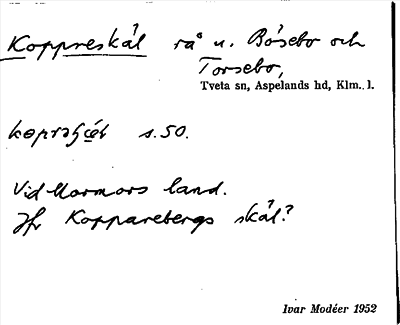 Koppreskål rå u. Bösebo och
Torsebo,
Tveta sn, Aspelands hd, Klm. l.
s. 50.
Vid Marmors land.
Jfr Kopparebergs skål?
Ivar Modéer 1952